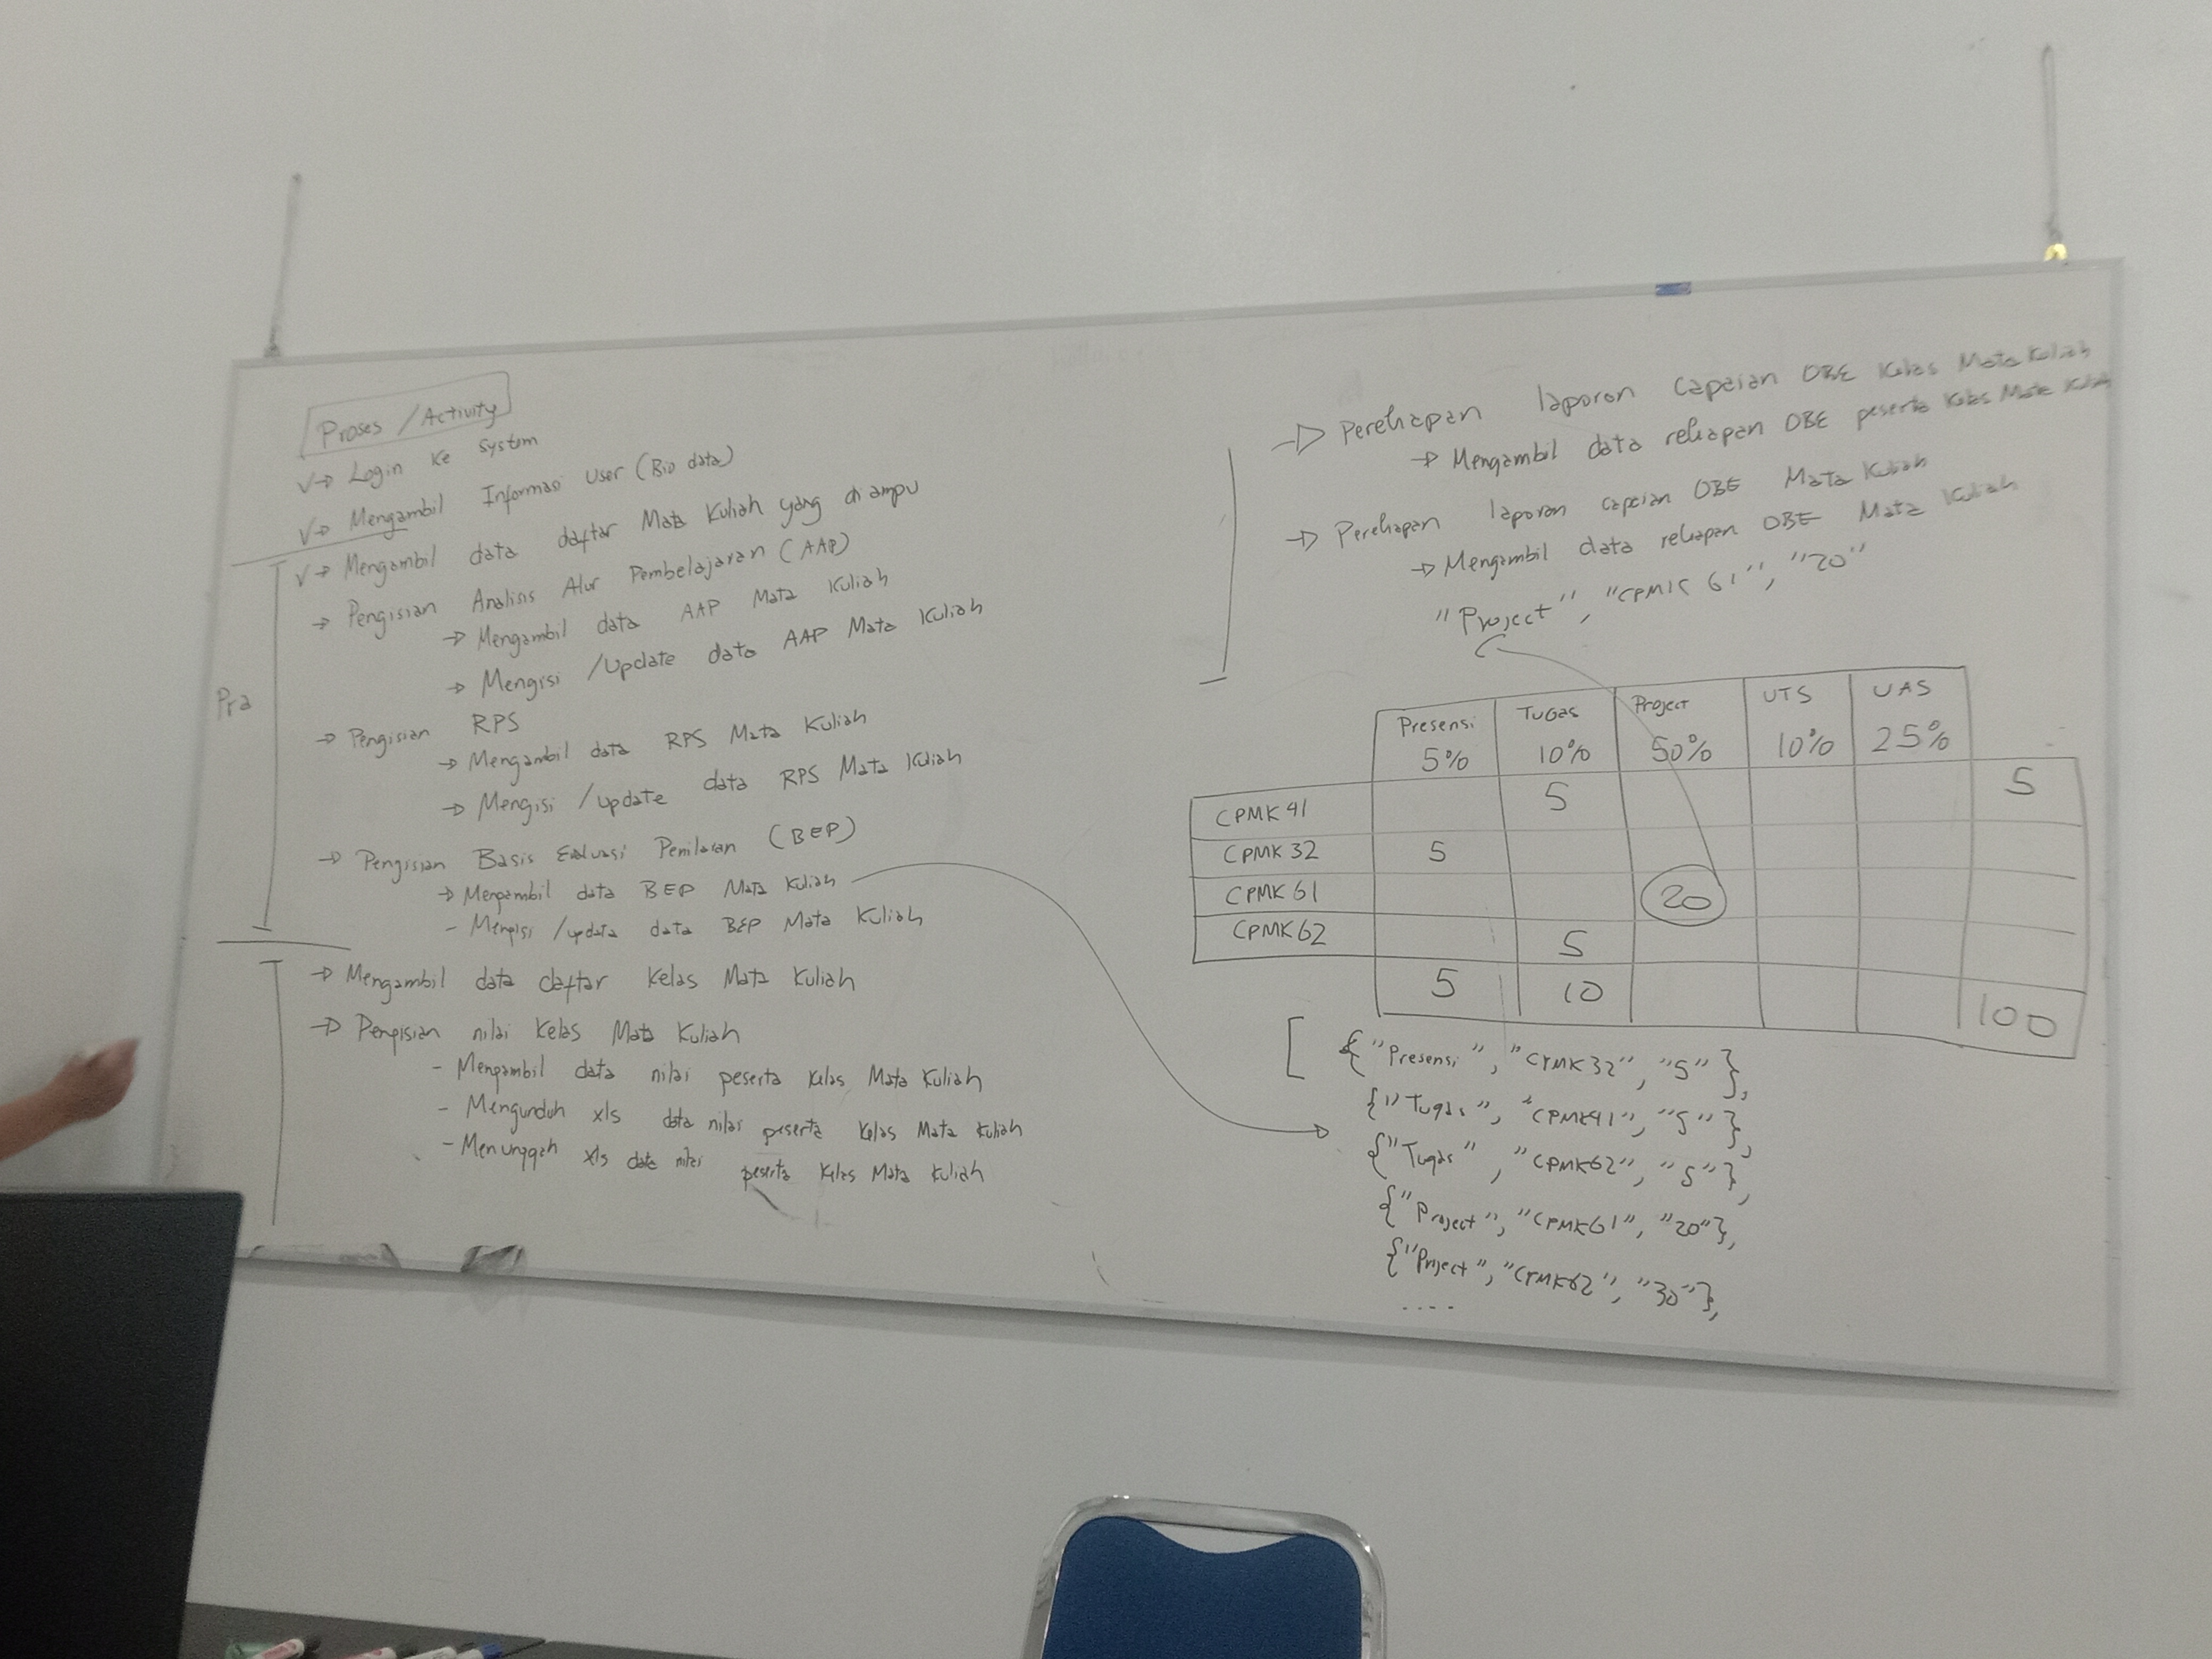 Proses / Activity
V→ Login ke system
V→ Mengambil Informasi User (Bio data)
V→ Mengambil data daftar Mata Kuliah yang diampu
→ Pengisian Analisis Alur Pembelajaran (AAP)
→ Mengambil data AAP Mata Kuliah
→ Mengisi / Update data AAP Mata Kuliah
Pra
→ Pengisian RPS
→ Mengambil data RPS Mata Kuliah
→ Mengisi / update data RPS Mata Kuliah
→ Pengisian Basis Evaluasi Penilaian (BEP)
→ Mengambil data BEP Mata Kuliah
- Mengisi / update data BEP Mata Kuliah
→ Mengambil data daftar Kelas Mata Kuliah
→ Pengisian nilai Kelas Mata Kuliah
- Mengambil data nilai peserta Kelas Mata Kuliah
- Mengunduh xls data nilai peserta Kelas Mata Kuliah
- Menunggah xls data nilai peserta Kelas Mata Kuliah
→ Perekapan laporan capaian OBE Kelas Mata Kuliah
→ Mengambil data rekapan OBE peserta Kelas Mata Kuliah
→ Perekapan laporan capaian OBE Mata Kuliah
→ Mengambil data rekapan OBE Mata Kuliah
"Project", "CPMK 61", "20"
Presensi Tugas Project UTS UAS
5% 10% 50% 10% 25%
CPMK 41 5 5
CPMK 32 5
CPMK 61 20
CPMK 62 5
5 10 100
[ {"Presensi", "CPMK32", "5"},
{"Tugas", "CPMK41", "5"},
{"Tugas", "CPMK62", "5"},
{"Project", "CPMK61", "20"},
{"Project", "CPMK62", "30"},
....